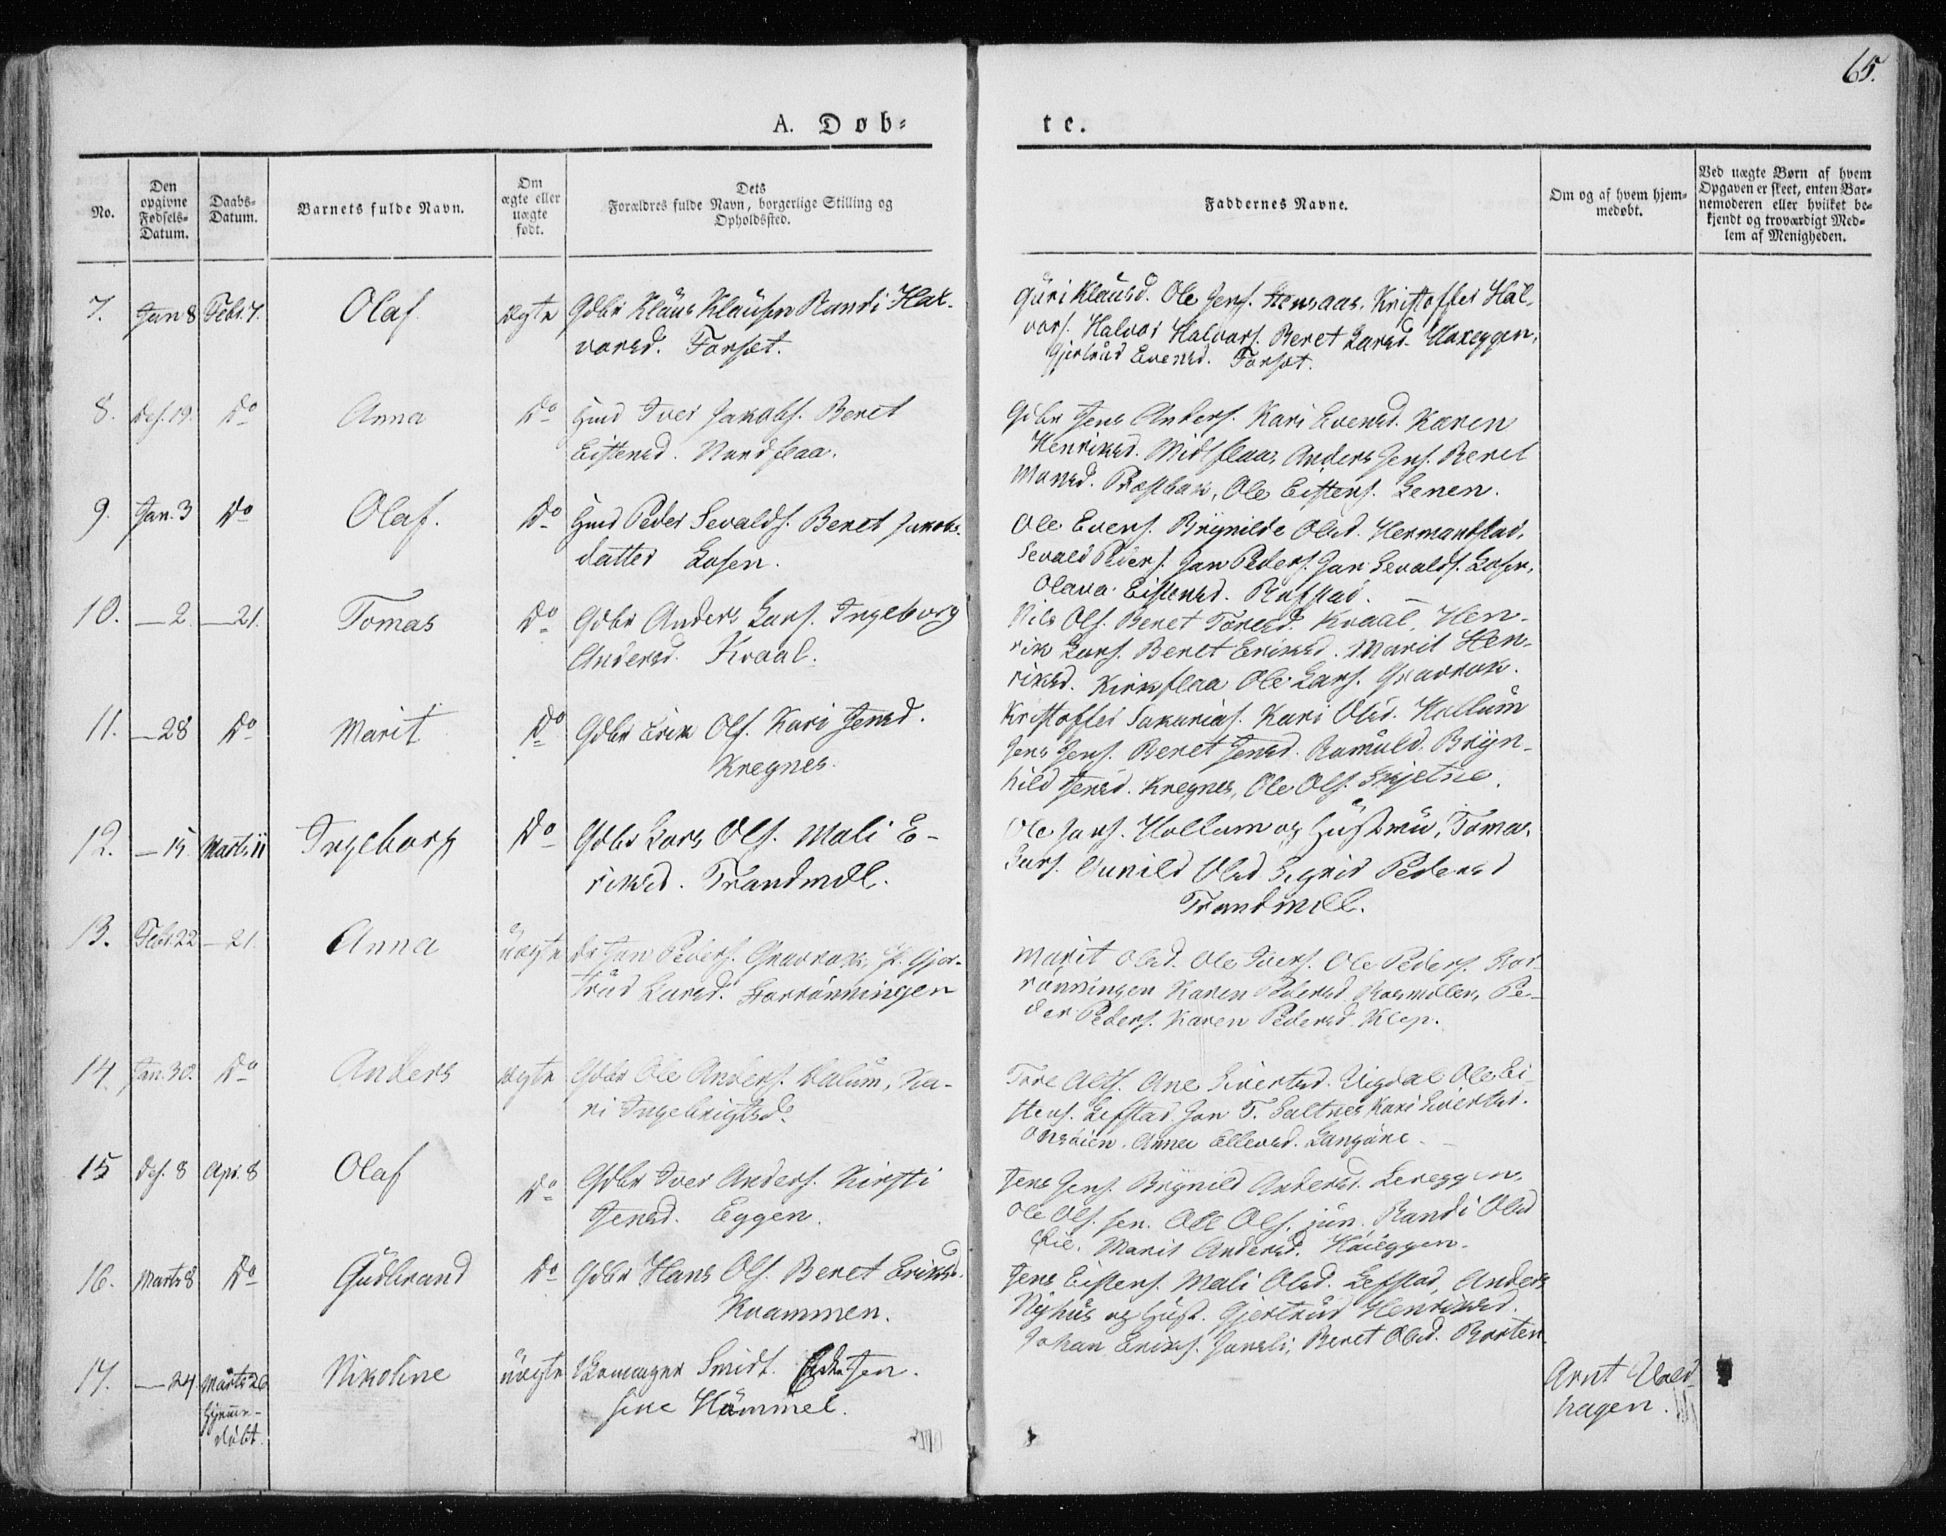 65.
A. Døb=
te.
No.
Den opgivne Fødsels-Datum.
Daabs-Datum.
Barnets fulde Navn.
Om ægte eller uægte født.
Dets Forældres fulde Navn, borgerlige Stilling og Opholdssted.
Faddernes Navne.
Om og af hvem hjemmedøbt.
Ved uægte Børn af hvem Opgaven er skeet, enten Barnemoderen eller hvilket bekjendt og troværdigt Medlem af Menigheden.
7. Jan 8 Febr. 7. Olaf ægte Gdbr Klaus Klausen Randi Hal-
vorsd. Forset.
Guri Klausd. Ole Jens. Stensaas, Kristoffer Hal-
vors. Halvor Halvors. Beret Larsd.
Gjertrud Evensd. Forset.
8. Des. 19. Do Anna Do Hmd Iver Jakobs. Beret
Eistensd. Nordflaa.
Gdbr Jens Anders. Kari Evensd. Karen
Henriksd. Midtflaa, Anders Jens. Beret
Monsd. Ole Eistens. Lenen.
9. Jan. 3 Do Olaf. Do Hmd Peder Sevalds. Beret Jakobs-
datter Losen.
Ole Evens. Brynilde Olsd. Hermanstad,
Sevald Peders. Jon Peders. Jon Sevalds. Losen,
Olava Eistensd. Rofstad.
10. — 2 — 21. Tomas Do Gdbr Anders Lars. Ingeborg
Andersd. Kvaal.
Nils Ols. Beret Toresd. Kvaal, Hen-
rik Lars. Beret Eriksd. Marit Hen-
riksd. Kirkflaa Ole Lars. Gravrok.
11. — 28 Do Marit Do Gdbr Erik Ols. Kari Jensd.
Kregnes.
Kristoffer Sakarias. Kari Olsd. Hollum
Jens Jens. Beret Jensd. Bryn-
hild Jensd. Kregnes, Ole Ols. Skjetne.
12. — 15 Marts 11 Ingeborg Do Gdbr Lars Ols. Mali E-
riksd. Trøndmel.
Ole Jans. Hollum og Hustru, Tomas
Lars. Gunild Olsd Sigrid Pedersd
Trandmel.
13. Febr. 22 — 21. Anna uægte Jon Peders. Gravrok, P. Gjer-
trud Larsd. Storrønningen
Marit Olsd. Ole Ivers. Ole Peders. Stor-
rønningen Karen Pedersd. Pe-
der Peders. Karen Pedersd. Klep.
14. Jan. 30. Do Anders ægte Gdbr Ole Anders. Dalum, Ka-
ri Ingebrigtsd.
Tore Ane Sivertsd. Vigdal Ole Ei-
stens. Lefstad Jon T. Saltnes Kari Sivertsd.
Onsøien. Anna Ellevsd. Langøre
15 Des. 8 Apr. 8 Olaf Do Gdbr Iver Anders. Kirsti
Jensd. Eggen.
Jens Jens. Brynild Andersd. Lereggen,
Ole Ols. sen. Ole Ols. jun. Randi Olsd
Øie. Marit Andersd. Høieggen.
16. Marts 8 Do Gudbrand Do Gdbr Hans Ols. Beret Eriksd.
Kvammen.
Jens Eistens. Mali Olsd. Lefstad, Anders
Nyhus og Hust. Gjertrud Henriksd.
Johan Eriks. Beret Olsd. Borten
17. — 24. Marts 26 Nikoline uægte Smidt.
Hammel.
hjemme-
døbt.
Arnt Vold-
hagen.